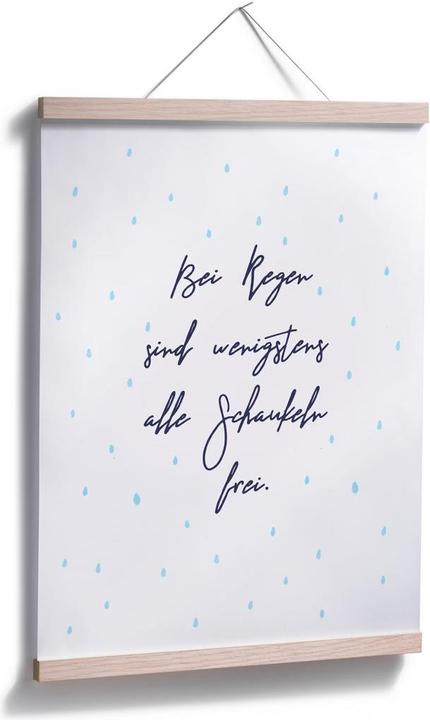 Bei Regen
sind wenigstens
alle Schaukeln
frei.